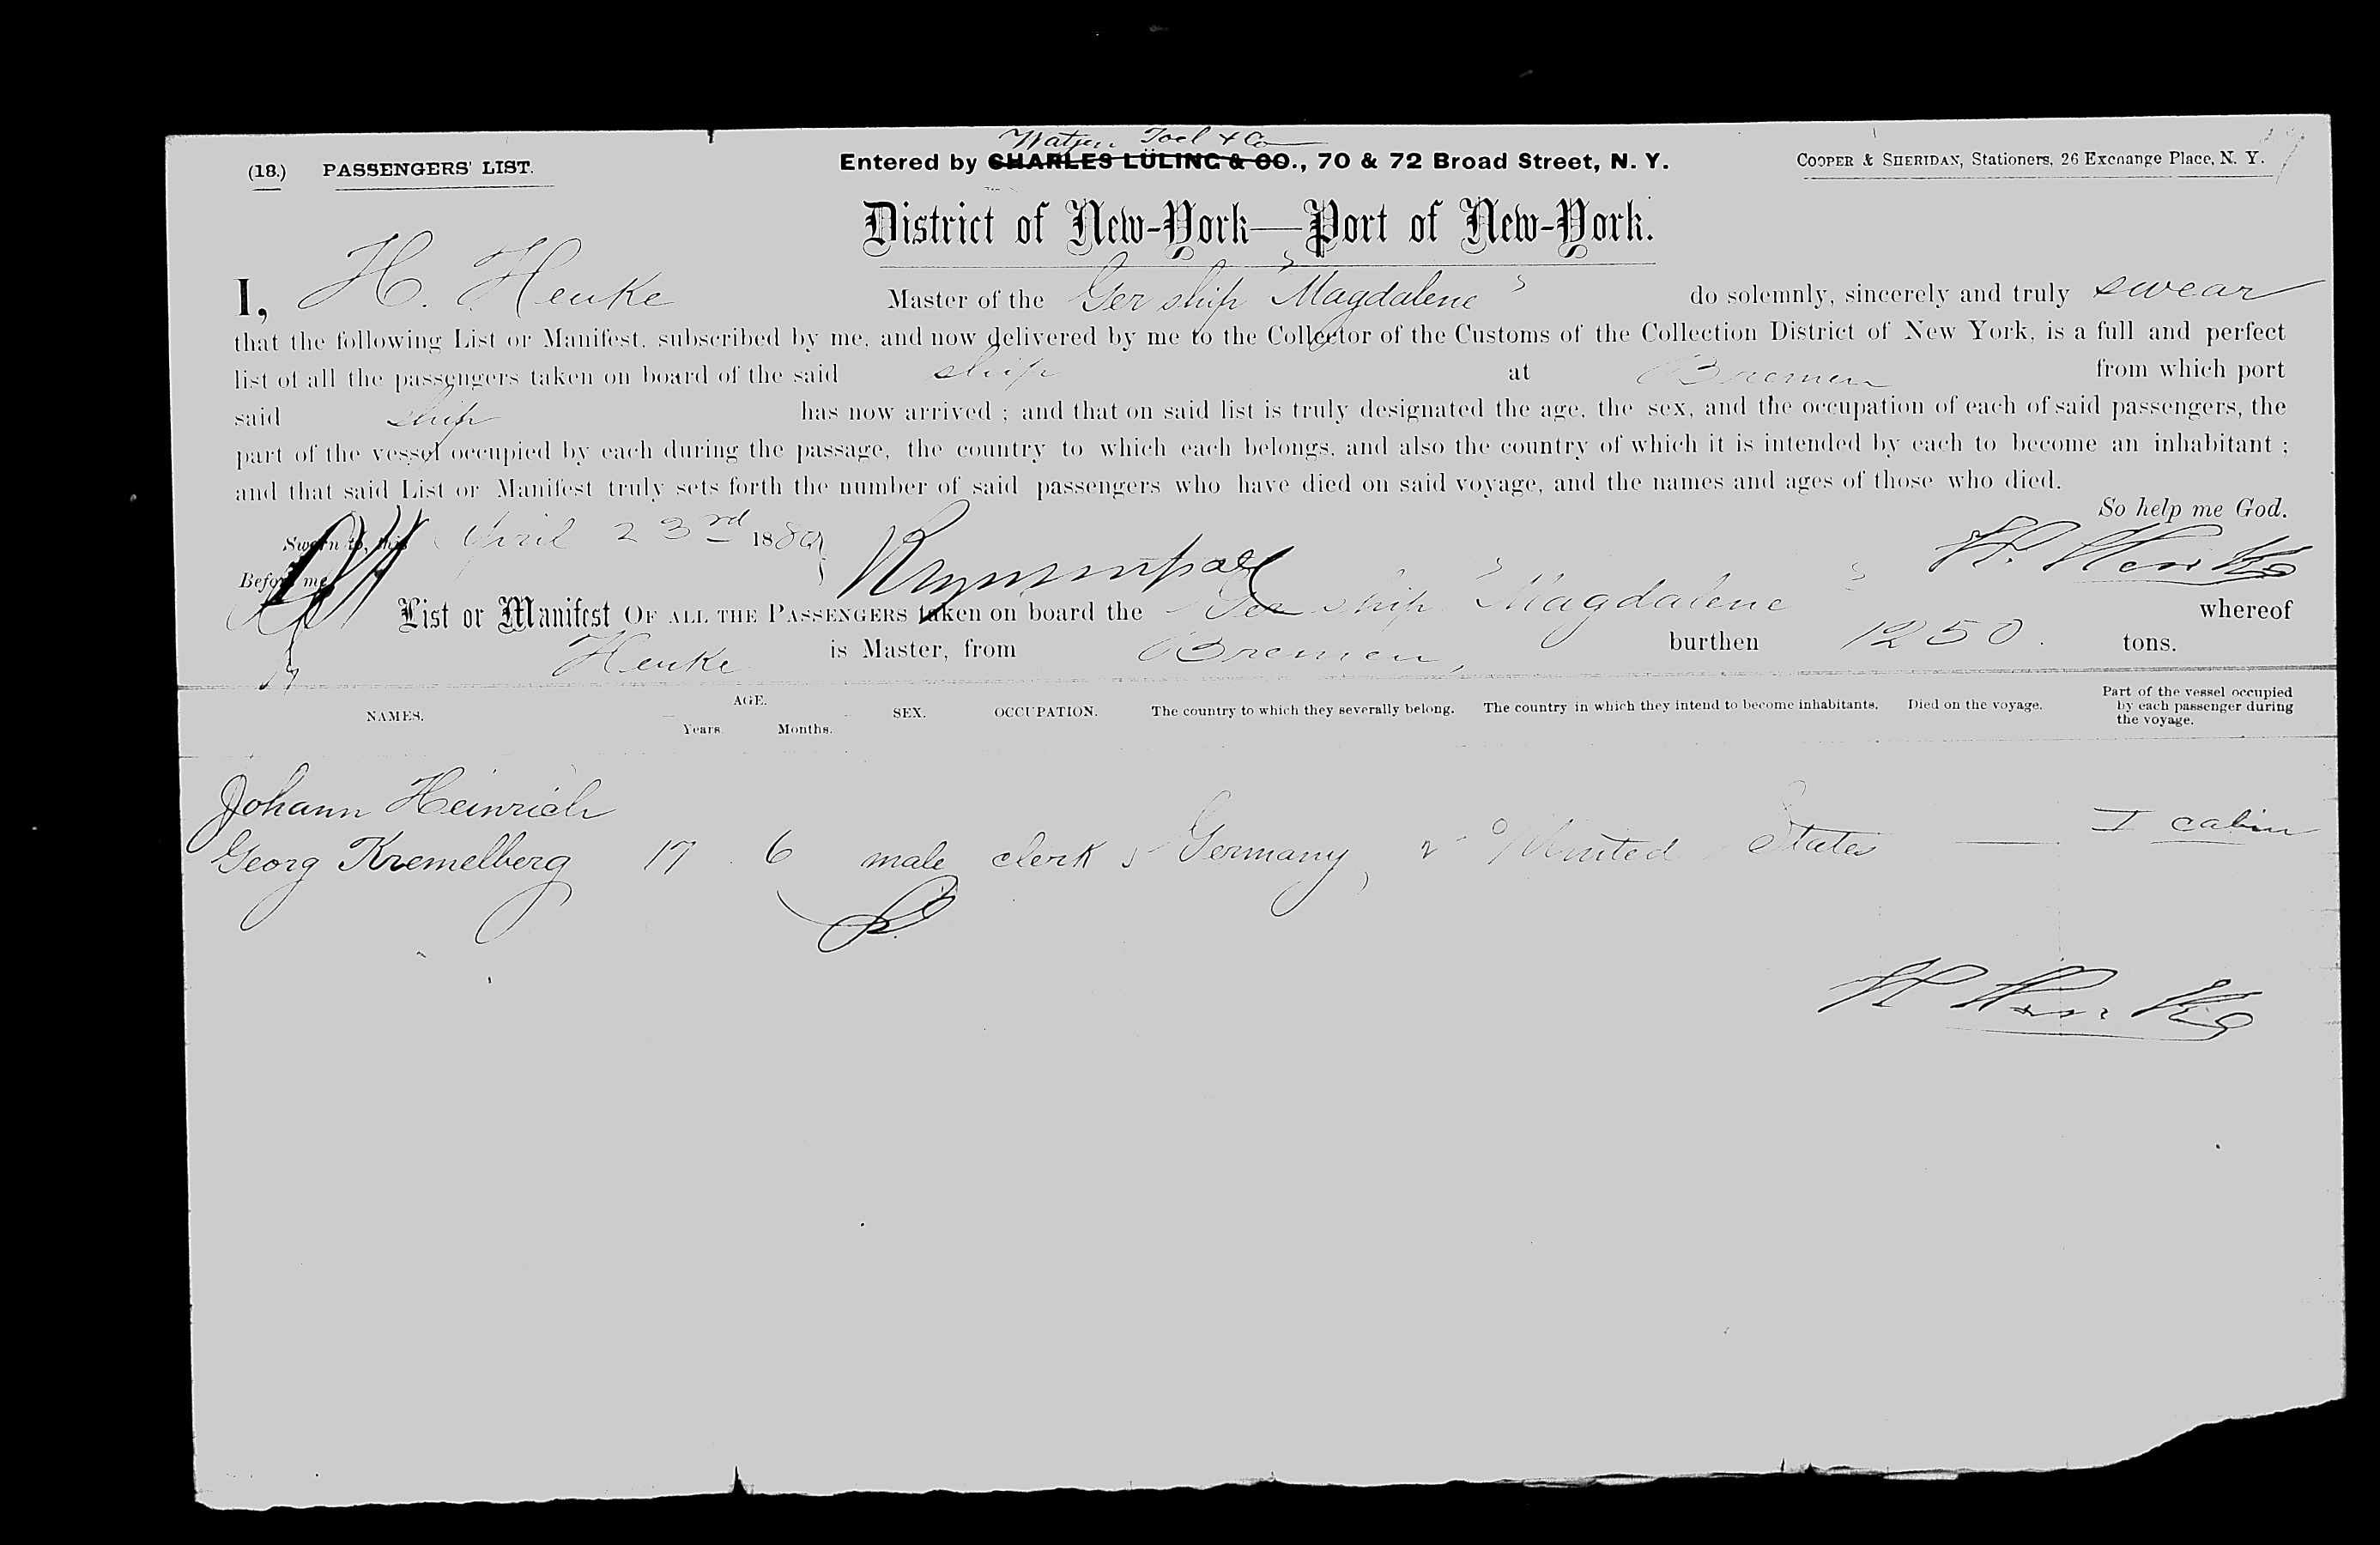 Watjen Toel & Co
(18.) PASSENGERS' LIST. Entered by CHARLES LÜLING & CO., 70 & 72 Broad Street, N. Y. COOPER & SHERIDAN, Stationers, 26 Exchange Place, N. Y.
District of New-York—Port of New-York.
I, H. Henke Master of the Ger ship "Magdalene" do solemnly, sincerely and truly swear
that the following List or Manifest, subscribed by me, and now delivered by me to the Collector of the Customs of the Collection District of New York, is a full and perfect
list of all the passengers taken on board of the said ship at Bremen from which port
said ship has now arrived ; and that on said list is truly designated the age, the sex, and the occupation of each of said passengers, the
part of the vessel occupied by each during the passage, the country to which each belongs, and also the country of which it is intended by each to become an inhabitant ;
and that said List or Manifest truly sets forth the number of said passengers who have died on said voyage, and the names and ages of those who died.
So help me God.
Sworn to, this April 23rd 1889
H. Henke
Before me
List or Manifest OF ALL THE PASSENGERS taken on board the Ger ship "Magdalene" whereof
Henke is Master, from Bremen, burthen 1250. tons.
NAMES. AGE. Years. Months. SEX. OCCUPATION. The country to which they severally belong. The country in which they intend to become inhabitants. Died on the voyage. Part of the vessel occupied by each passenger during the voyage.
Johann Heinrich
Georg Kremelberg 17 6 male clerk Germany United States — I cabin
H Henke